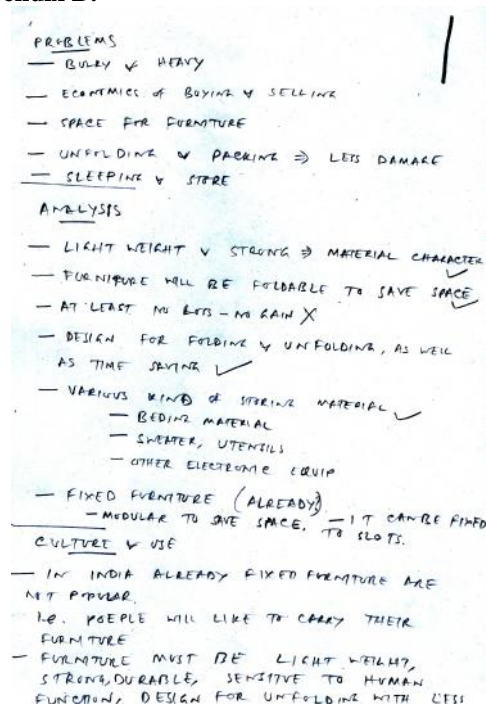 PROBLEMS
— BULKY & HEAVY
— ECONOMICS of BUYING & SELLING
— SPACE FOR FURNITURE
— UNFOLDING & PACKING ⇒ LESS DAMAGE
— SLEEPING & STORE
ANALYSIS
— LIGHT WEIGHT & STRONG ⇒ MATERIAL CHARACTER
— FURNITURE WILL BE FOLDABLE TO SAVE SPACE ✓
— AT LEAST NO LOSS – NO GAIN X
— DESIGN FOR FOLDING & UNFOLDING, AS WELL
AS TIME SAVING ✓
— VARIOUS KIND of STORING MATERIAL ✓
— BEDING MATERIAL
— SWEATER, UTENSILS
— OTHER ELECTRONIC EQUIP
— FIXED FURNITURE (ALREADY)
— MODULAR TO SAVE SPACE. — IT CAN BE FIXED
TO SLOTS.
CULTURE & USE
— IN INDIA ALREADY FIXED FURNITURE ARE
NOT POPULAR.
i.e. POEPLE WILL LIKE TO CARRY THEIR
FURNITURE
— FURNITURE MUST BE LIGHT WEIGHT,
STRONG, DURABLE, SENSITVE TO HUMAN
FUNCTION, DESIGN FOR UNFOLDING WITH LESS